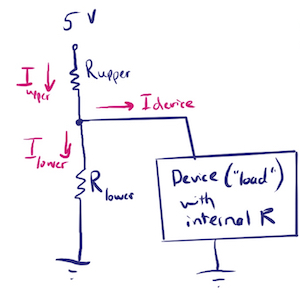 5 V
I upper
Rupper
I device
I lower
R lower
Device ("load")
with
internal R